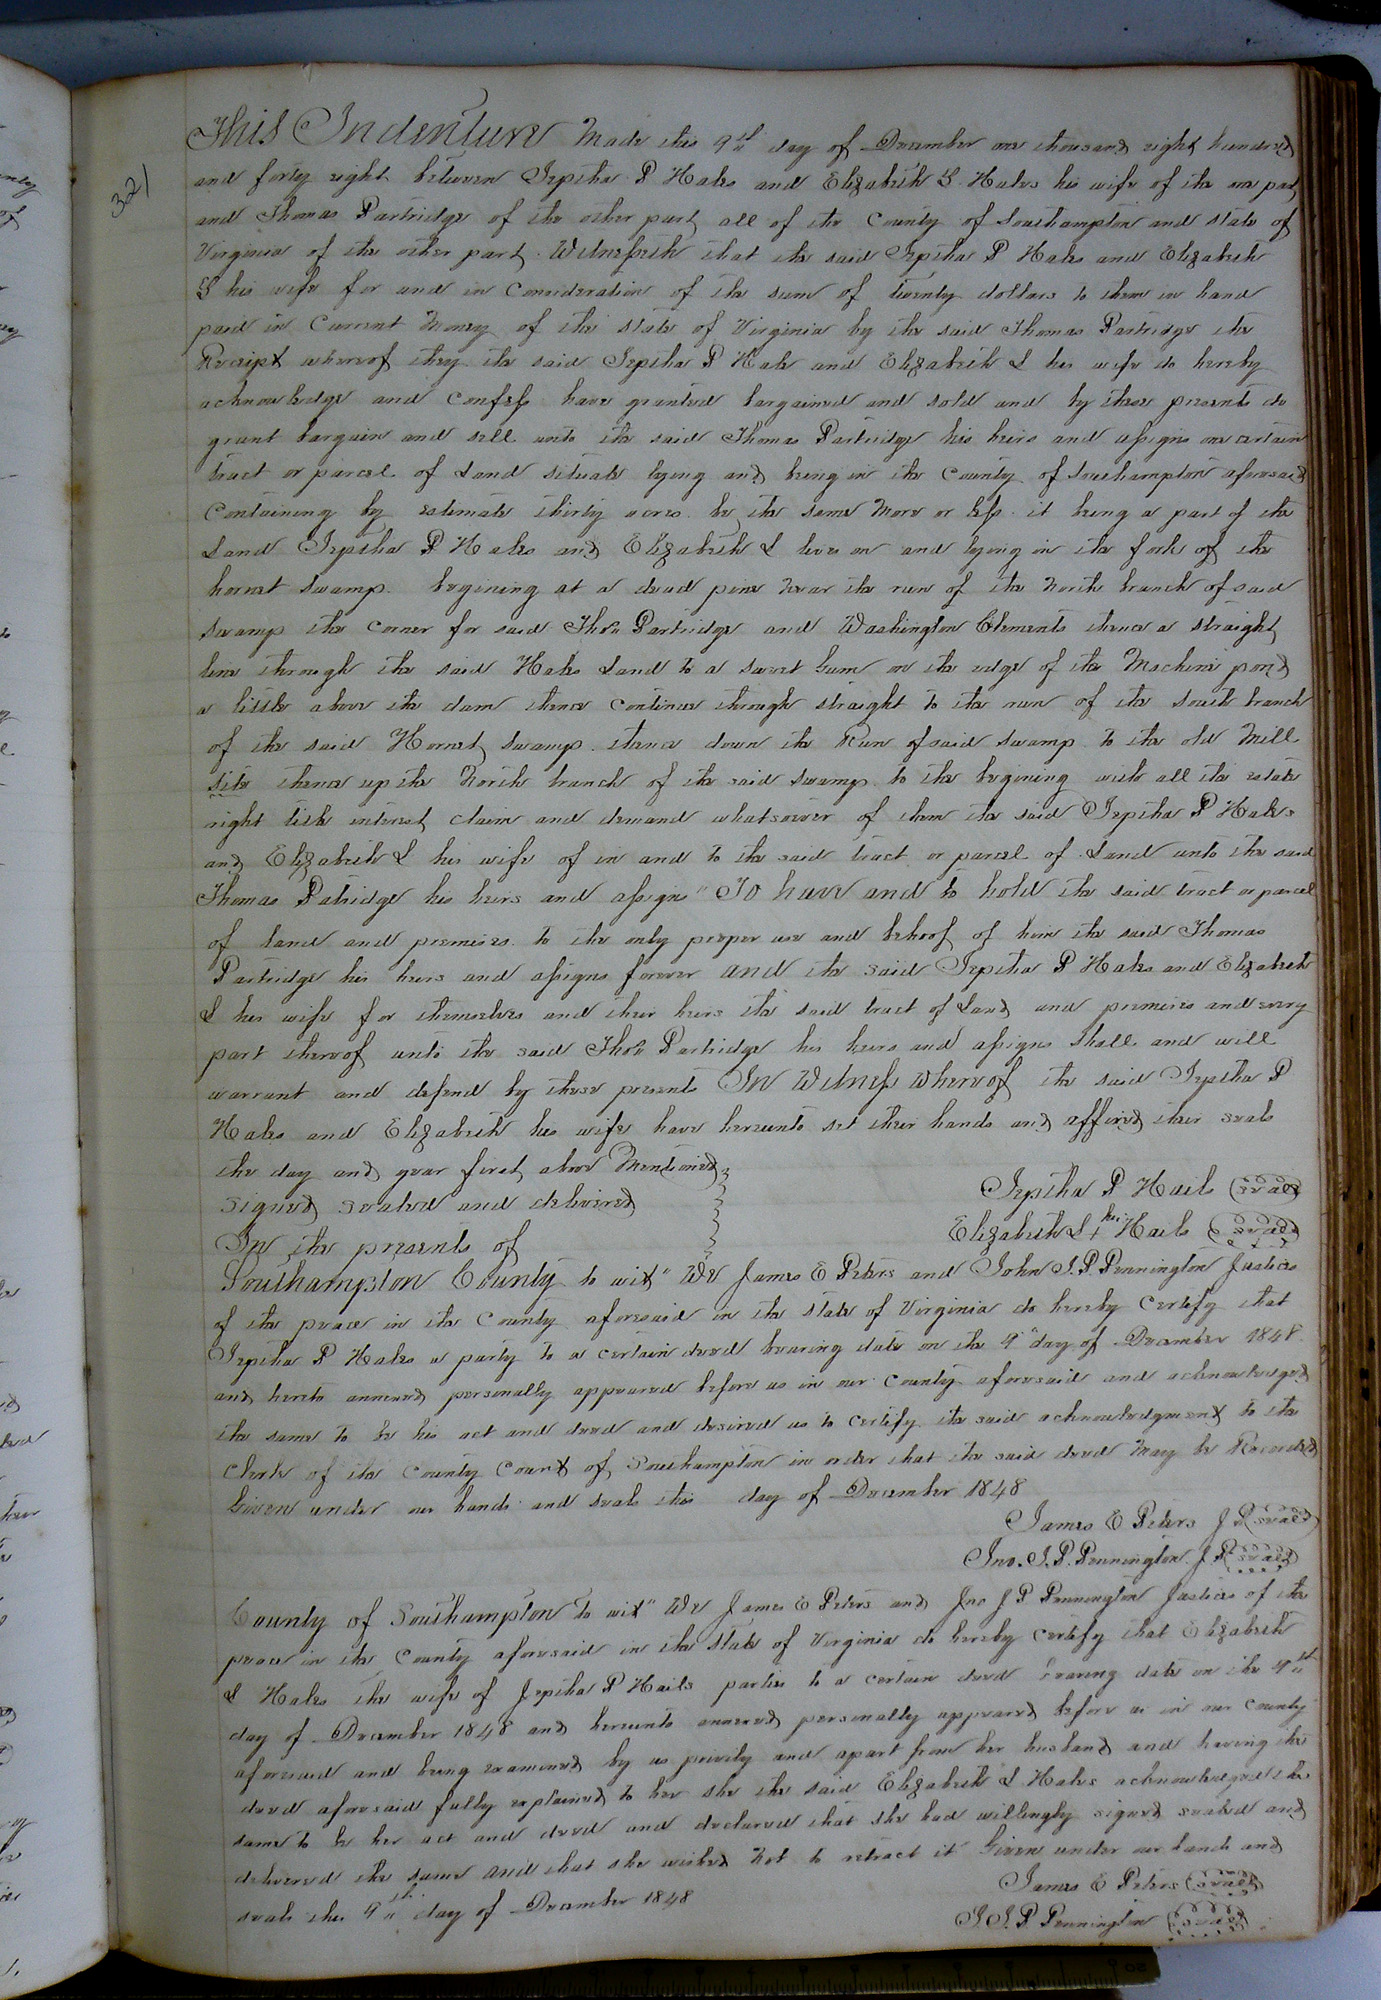 321
This Indenture Made this 9th day of December one thousand eight hundred
and forty eight between Jeptha P Hales and Elizabeth S Hales his wife of the one part
and Thomas Partridge of the other part all of the County of Southampton and State of
Virginia of the other part. Witnesseth that the said Jeptha P Hales and Elizabeth
S his wife for and in Consideration of the sum of twenty dollars to them in hand
paid in Current Money of the State of Virginia by the said Thomas Partridge the
Receipt whereof they the said Jeptha P Hale and Elizabeth L his wife do hereby
acknowledge and Confess have granted bargained and sold and by these presents do
grant bargain and sell unto the said Thomas Partridge his heirs and assigns one certain
tract or parcel of Land situate lying and being in the County of Southampton aforesaid
Containing by estimate thirty acres be the same More or less it being a part of the
Land Jeptha P Hales and Elizabeth L lives on and lying in the fork of the
hornet swamp. begining at a dead pine Near the run of the North branch of said
swamp the corner for said Thos Partridge and Washington Clements thence a straight
line through the said Hales Land to a sweet Gum on the edge of the Machine pond
a little above the dam thence continue through straight to the run of the south branch
of the said Hornet swamp. thence down the Run of said swamp to the old Mill
site thence up the North branch of the said swamp to the begining with all the estate
right title interest claim and demand whatsoever of them the said Jeptha P Hales
and Elizabeth L his wife of in and to the said tract or parcel of Land unto the said
Thomas Patridge his heirs and assigns " To have and to hold the said tract or parcel
of land and premises to the only proper use and behoof of him the said Thomas
Partridge his heirs and assigns forever and the said Jeptha P Hales and Elizabeth
L his wife for themselves and their heirs the said tract of Land and premises and every
part thereof unto the said Thos Partridge his heirs and assigns shall and will
warrant and defend by these presents In Witness whereof the said Jeptha P
Hales and Elizabeth his wife have hereunto set their hands and affixed their seals
the day and year first above Mentioned
signed sealed and delivered
In the presents of
Jeptha P Hails (seal)
Elizabeth L + her Hails (seal)
Southampton County to wit" We James E Peters and John J. P. Pennington Justices
of the peace in the County aforesaid in the State of Virginia do hereby Certify that
Jeptha P Hales a party to a certain deed bearing date on the 9" day of December 1848
and hereto annexed personally appeared before us in our County aforesaid and acknowledged
the same to be his act and deed and desired us to certify the said acknowledgment to the
Clerk of the County Court of Southampton in order that the said deed May be Recorded
Given under our hands and seals this day of December 1848
James E Peters J P (seal)
Jno. J. P. Pennington J. P. (seal)
County of Southampton to wit" We James E Peters and Jno J P Pennington Justices of the
peace in the County aforesaid in the State of Virginia do hereby certify that Elizabeth
L Hales the wife of Jeptha P Hails parties to a certain deed bearing date on the 9th
day of December 1848 and hereunto annexed personally appeared before us in our County
aforesaid and being examined by us privily and apart from her husband and having the
deed aforesaid fully explained to her she the said Elizabeth L Hales acknowledged the
same to be her act and deed and declared that she had willingly signed sealed and
delivered the same and that she wished Not to retract it Given under our hands and
seals this 9th day of December 1848
James E Peters (seal)
J. J. P Pennington (seal)